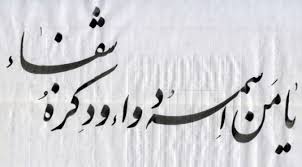 یا مَن اِسمهُ دواء و ذِکرهُ
شفٰاء